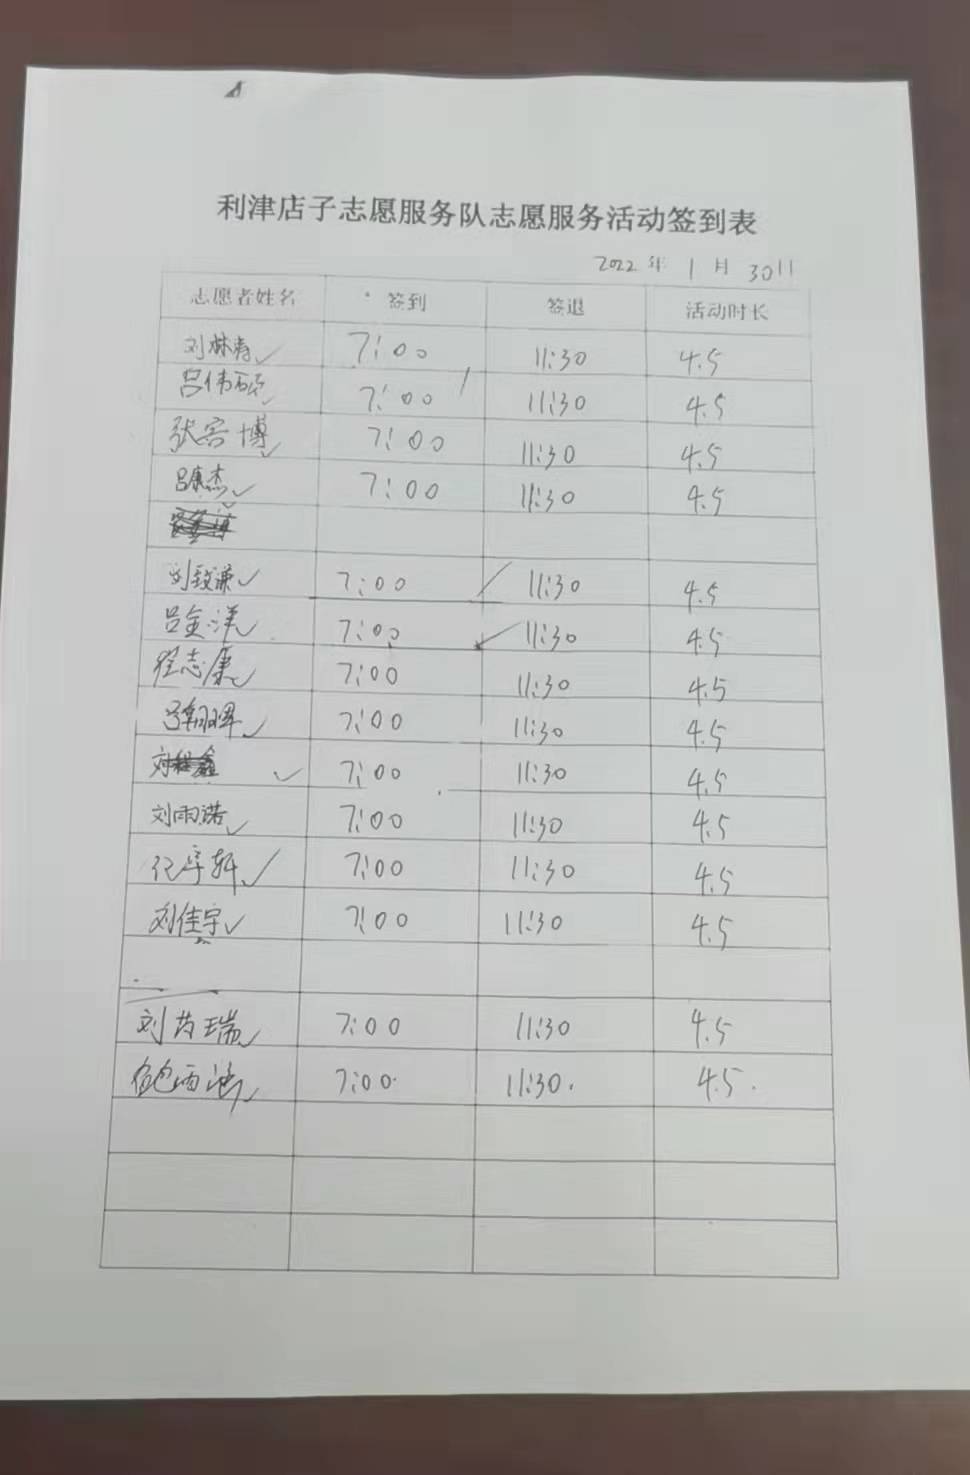 利津店子志愿服务队志愿服务活动签到表
2022 年 1 月 30日
志愿者姓名 签到 签退 活动时长
刘林春 7:00 11:30 4.5
吕伟硕 7:00 11:30 4.5
张容博 7:00 11:30 4.5
吕康杰 7:00 11:30 4.5
刘致谦 7:00 11:30 4.5
吕金洋 7:00 11:30 4.5
徐志康 7:00 11:30 4.5
吕朝晖 7:00 11:30 4.5
刘 鑫 7:00 11:30 4.5
刘雨诺 7:00 11:30 4.5
纪宇轩 7:00 11:30 4.5
刘佳宇 7:00 11:30 4.5
刘芮瑞 7:00 11:30 4.5
7:00 11:30 4.5